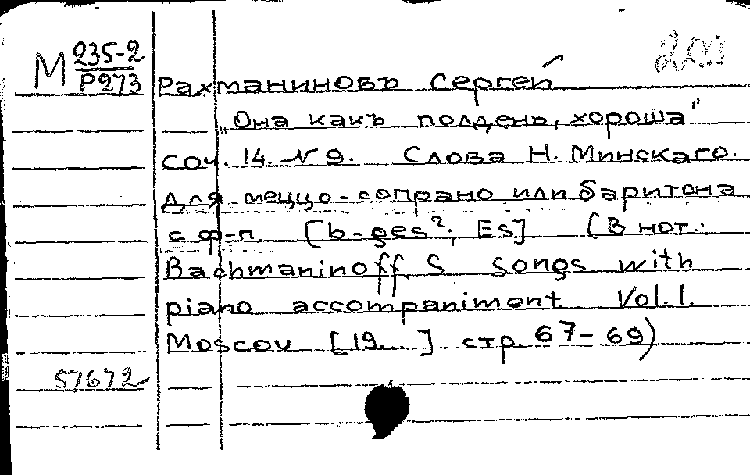 М 235-2
Р273
Рахманиновъ Сергей
„Она какъ полдень, хороша"
соч. 14. № 9. Слова Н. Минскаго.
для меццо-сопрано или баритона
с ф-п. [b-ges²; Es] (В нот.:
Rachmaninoff, S Songs with
piano accompaniment Vol. I.
Moscou [19...] стр. 67-69)
57672